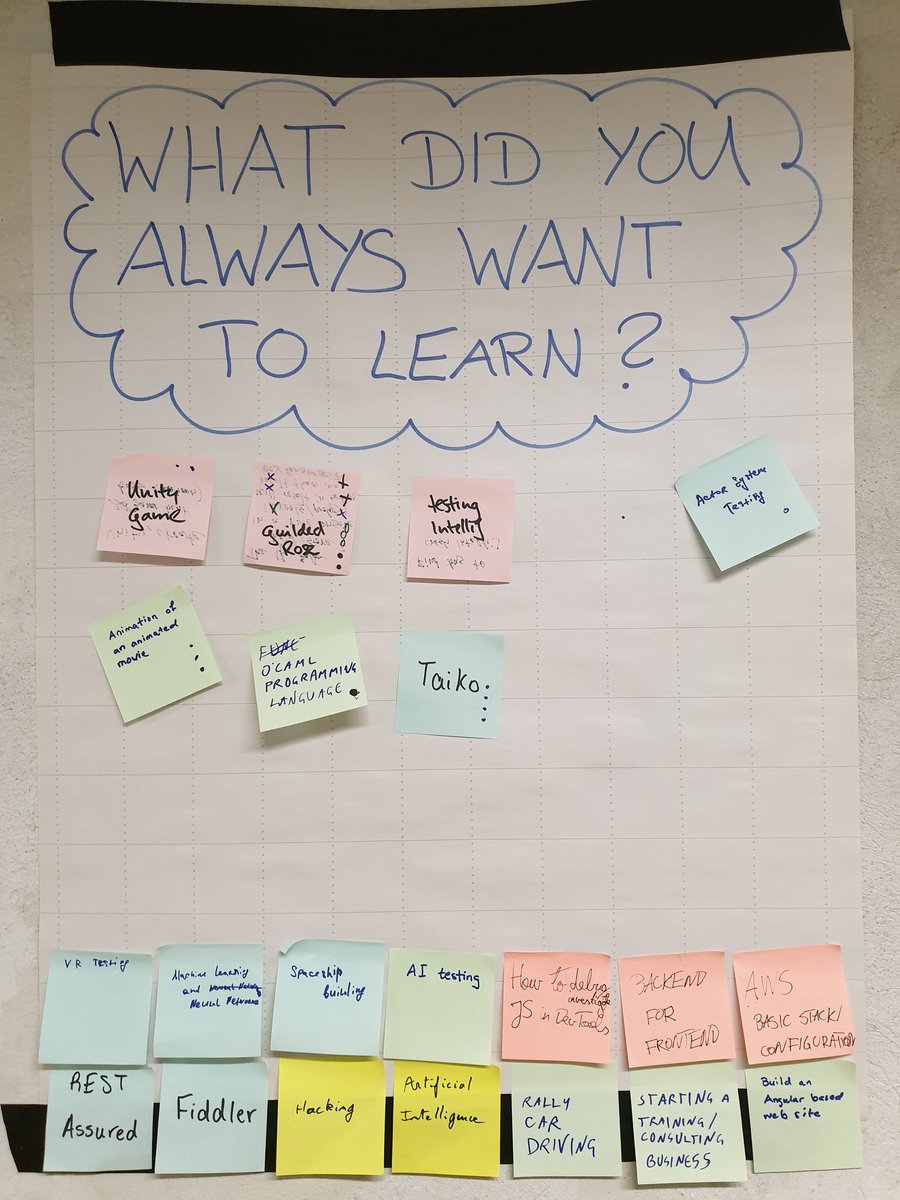 WHAT DID YOU
ALWAYS WANT
TO LEARN?
Unity
Game
Guilded
Rose
testing
Intellij
Actor System
Testing
Animation of
an animated
movie
O'CAML
PROGRAMMING
LANGUAGE
Taiko
VR Testing
Machine Learning
and
Neural Networks
Spaceship
building
AI testing
How to debug
investigate
JS in DevTools
BACKEND
FOR
FRONTEND
AWS
BASIC STACK/
CONFIGURATION
REST
Assured
Fiddler
Hacking
Artificial
Intelligence
RALLY
CAR
DRIVING
STARTING A
TRAINING/
CONSULTING
BUSINESS
Build an
Angular based
web site